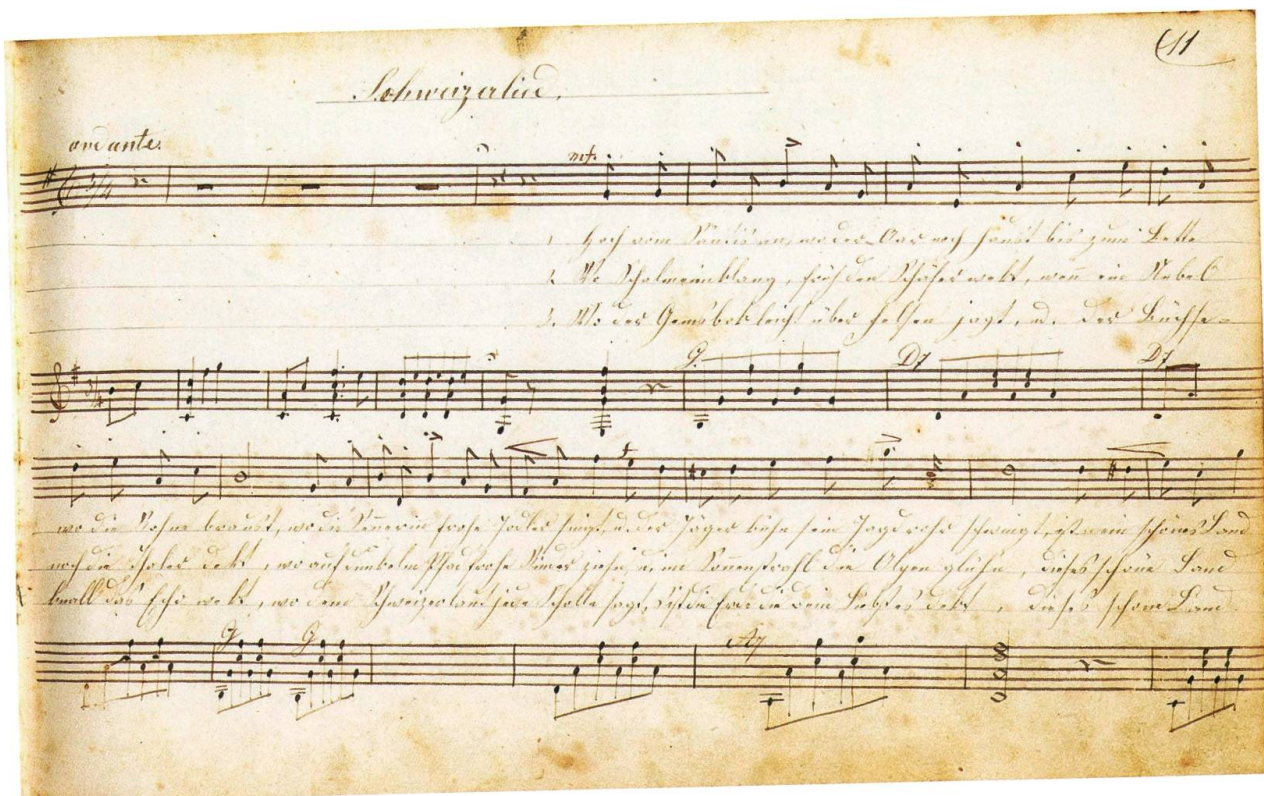 11
Schweizerlied.
andante.
mf.
1. Hoch vom Säntis an, wo der Aar noch haust bis zum Bette
2. Wo Schalmeienklang, früh den Schäfer wekt, wenn ein Nebel
3. Wo der Gemsbok leicht über Felsen jagt, u. der Büchse=
G. D7 D7
f
wo die braust, wo die Sennerin frohe Jodler singt, u. der Jäger kühn sein Jagdrohr schwingt, ist mein schönes Land
noch die Thäler dekt, wo auf dunkelm Pfad frohe Rinder ziehn, u. im Sonnenstrahl die Alpen glühn, dieses schöne Land
knall das Echo wekt, wo dem Schweizer laut jede Scholle sagt, die Erde die dein Liebstes dekt, dieses schöne Land
G G A7